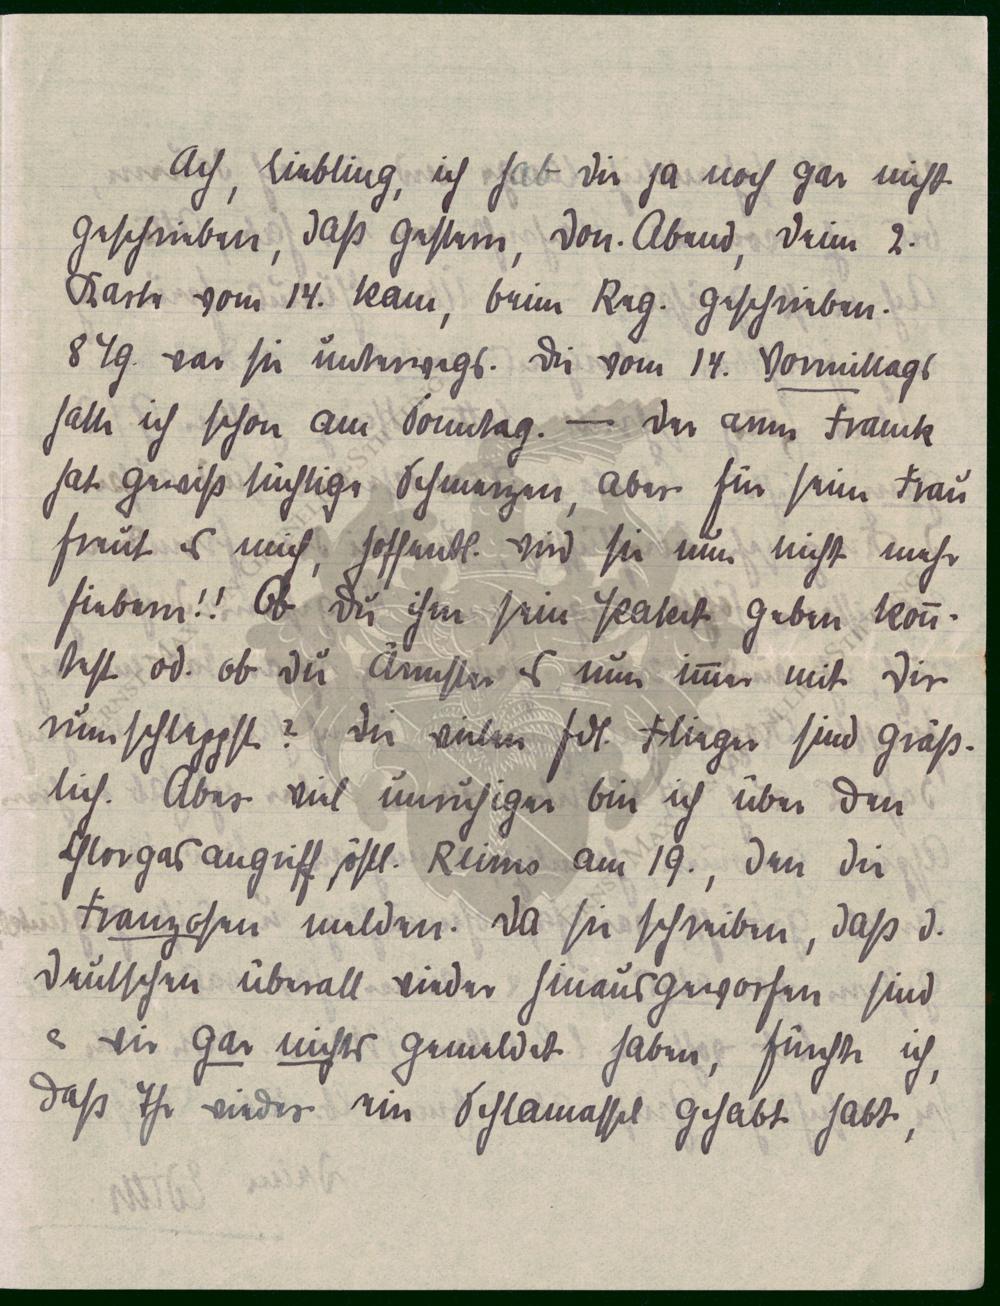 Ach, Liebling, ich hab dir ja noch gar nicht
geschrieben, daß gestern, Don. Abend, deine 2.
Karte vom 14. kam, beim Reg. geschrieben.
8 Tg. war sie unterwegs. Die vom 14. Vormittags
hatte ich schon am Sonntag. — Der arme Franck
hat gewiß tüchtige Schmerzen, aber für seine Frau
freut es mich, hoffentl. wird sie nun nicht mehr
fiebern!! Ob du ihm sein Paket geben konn̄-
test od. ob du Ärmster es nun im̄er mit dir
rumschleppst? Die vielen fdl. Flieger sind gräß-
lich. Aber viel unruhiger bin ich über den
Gasangriff östl. Reims am 19., den die
Franzosen melden. Da sie schreiben, daß d.
Deutschen überall wieder hinausgeworfen sind
& wir gar nichts gemeldet haben, fürchte ich,
daß Ihr wieder ein Schlamassel gehabt habt,